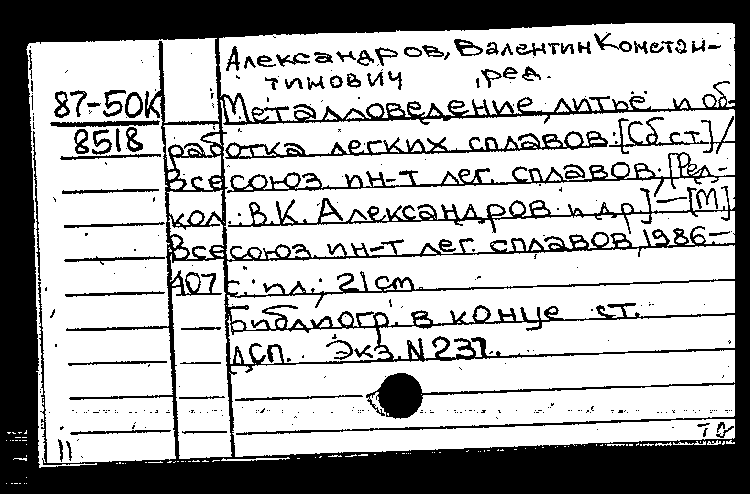 Александров, Валентин Констан-
тинович, ред.
87-50К Металловедение, литье и об-
8518 работка легких сплавов: [Сб ст.] /
Всесоюз. ин-т лег. сплавов; [Ред-
кол.: В.К. Александров и др.] — [М.]
Всесоюз. ин-т лег. сплавов, 1986 —
407 с.: ил.; 21 см.
Библиогр. в конце ст.
ДСП. Экз. N 237.
11